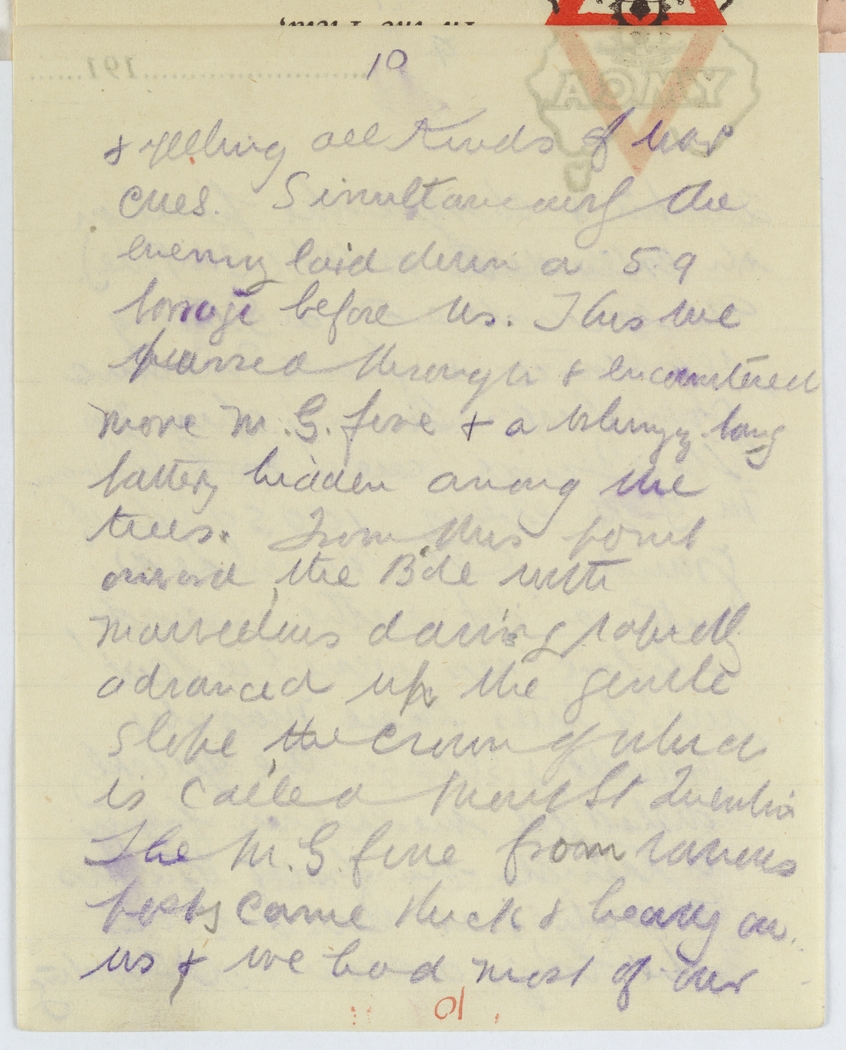 10
& yelling all kinds of war
cries. Simultaneously the
enemy laid down a 5.9
barrage before us. This we
passed through & encountered
more M.G. fire & a
battery hidden among the
trees. From this point
onward, the Bde with
marvellous daring rapidly
advanced up the gentle
slope, the crown of which
is called Mont St Quentin
The M.G. fire from various
posts came thick & heavy on
us & we had most of our
10
AOMY
191